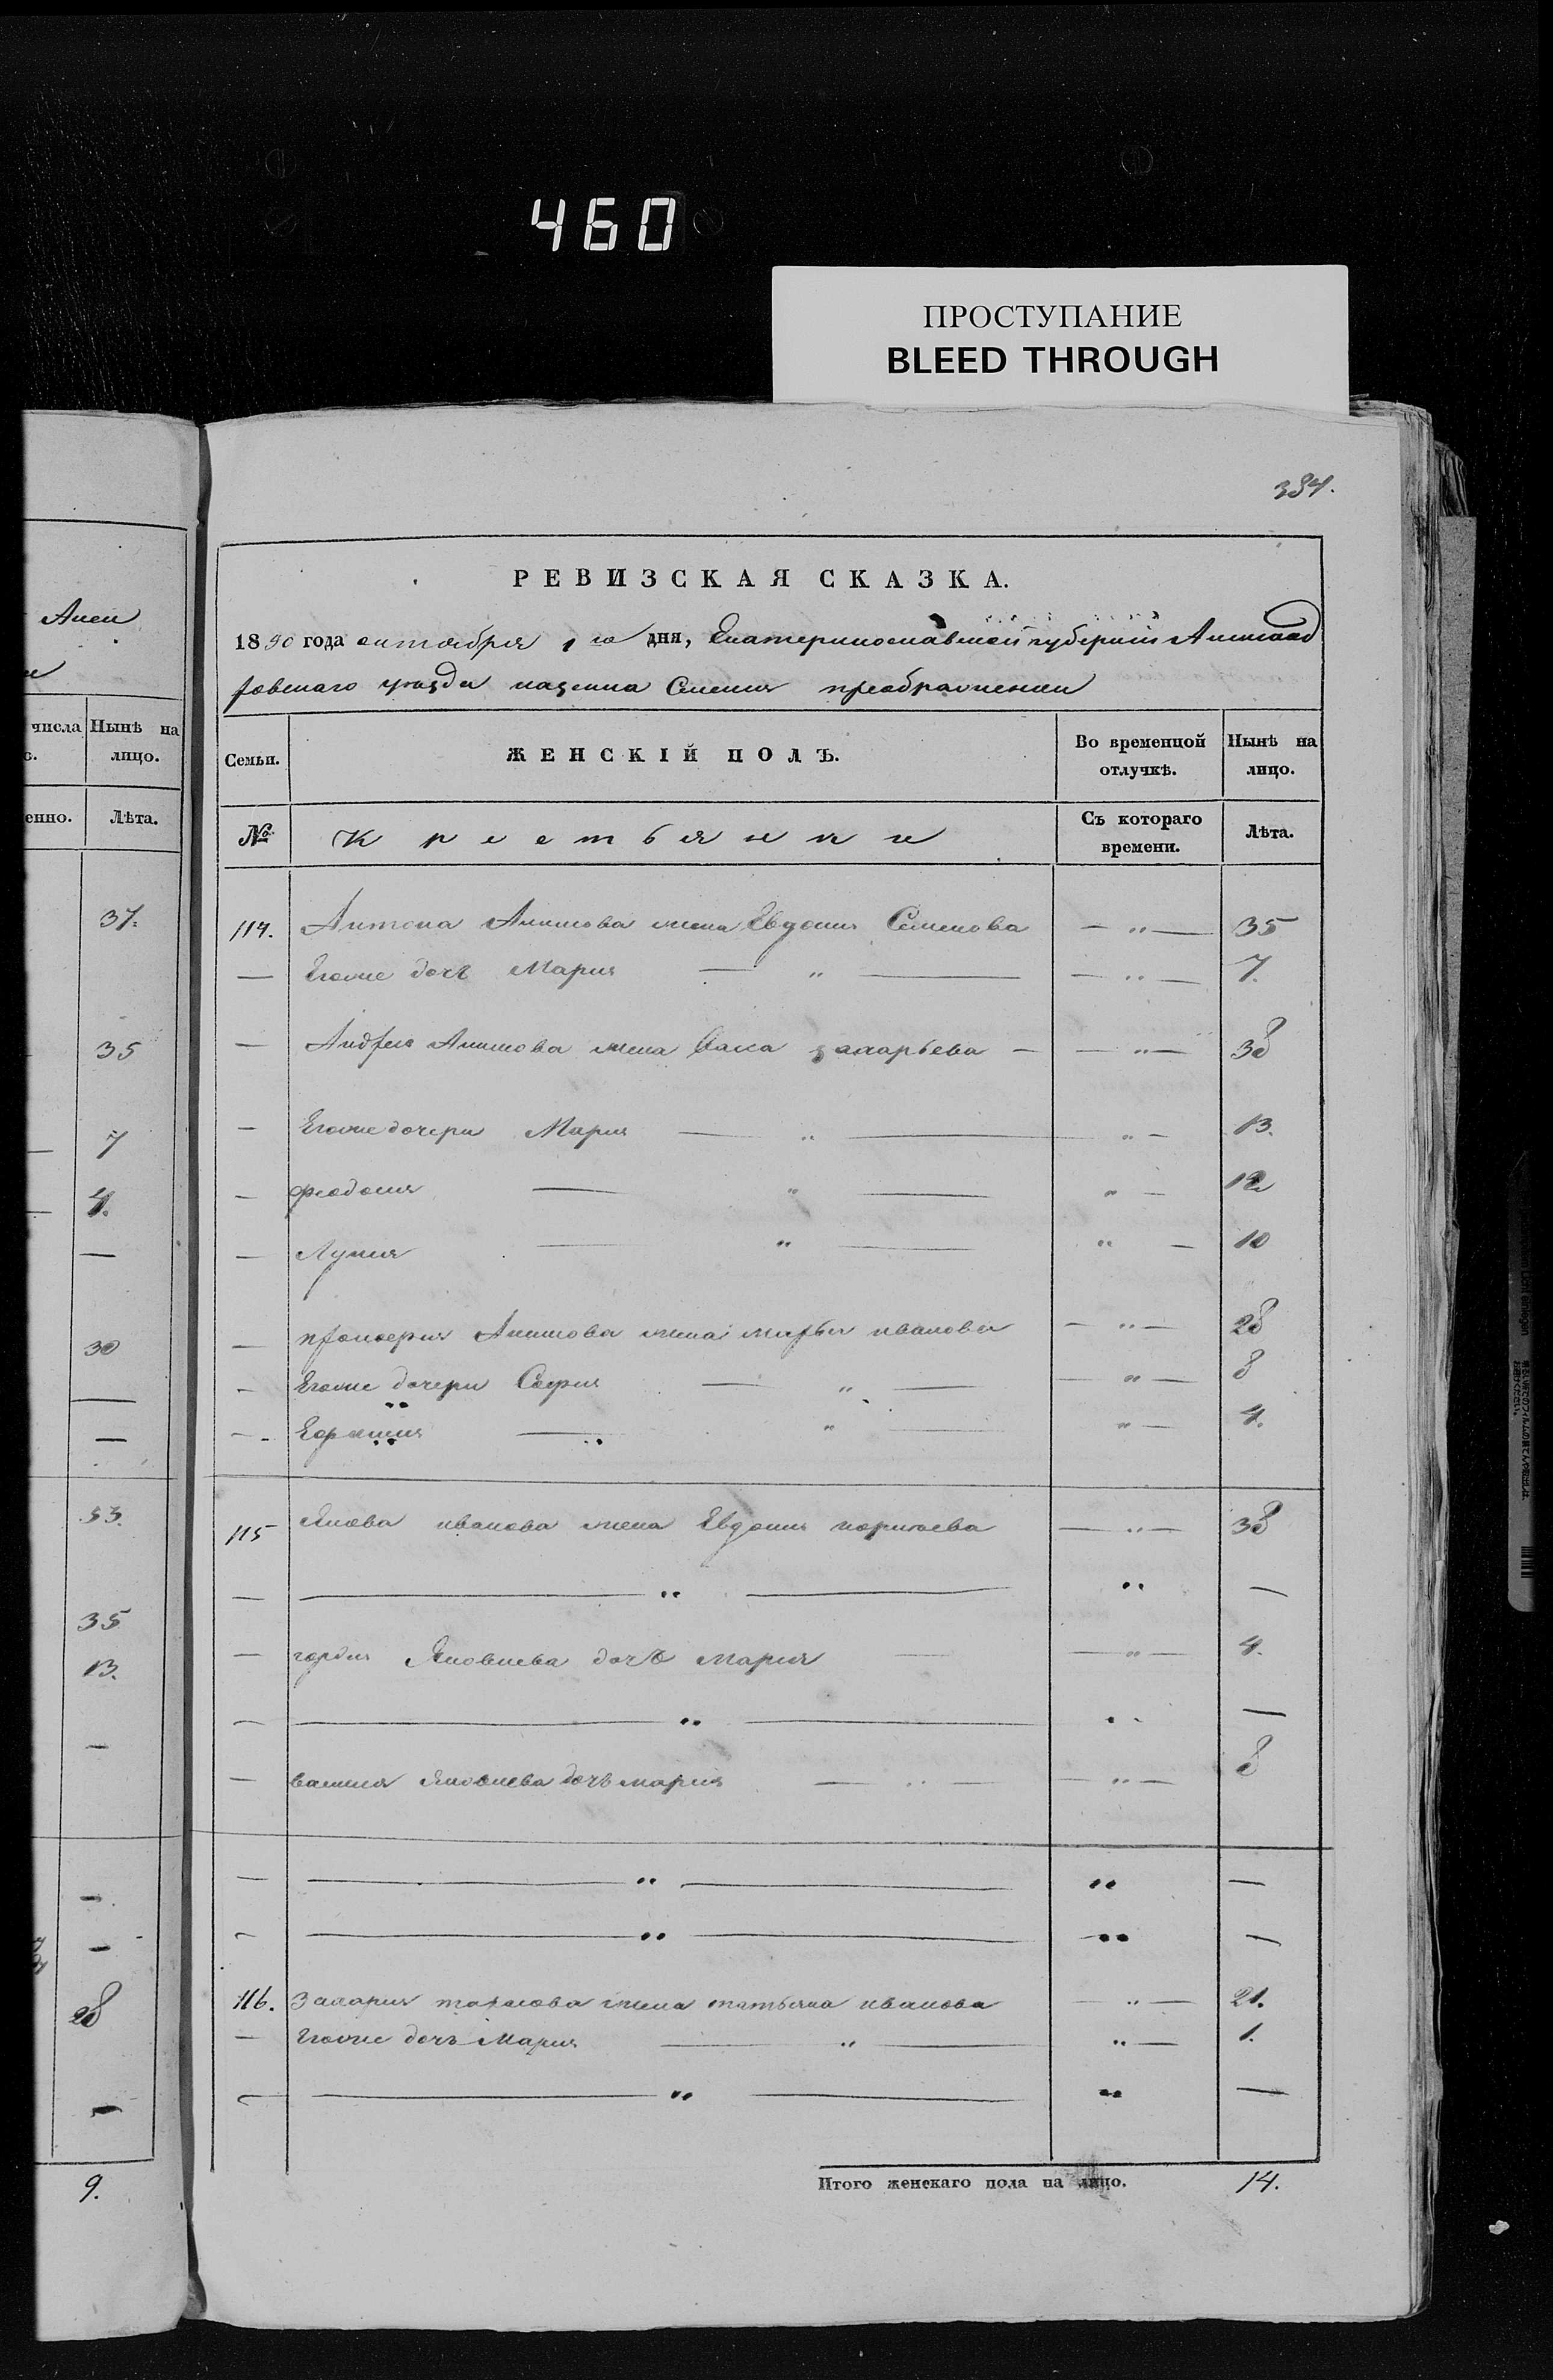 460
ПРОСТУПАНИЕ
BLEED THROUGH
384.
РЕВИЗСКАЯ СКАЗКА.
1850 года октября 1 го дня, Екатеринославской губернии Александ
ровскаго уезда казенна Селения преображенки
числа
Нынѣ на лицо.
Семьи.
ЖЕНСКІЙ ПОЛЪ.
Во временной отлучкѣ.
Нынѣ на лицо.
енно.
Лѣта.
№
Крестьянки
Съ котораго времени.
Лѣта.
37.
114. Антона Акимова жена Евдокия Семенова — " — 35
— Егоже дочь Мария — " — — " — 7.
35
— Андрея Акимова жена Васса захарьева — — " — 38
7
— Егоже дочери Мария — " — " — 13.
4.
— феодосия — " — " — 12
—
— Лукия — " — " — 10
30
— прокофия Акимова жена марья иванова — " — 28
—
— Егоже дочери София — " — — " — 8
—
— Ефимия — " — " — 4.
53.
115 Якова иванова жена Евдокия корнеева — " — 38
— — " — " —
35
13.
— гордия Яковлева дочь мария — — " — 4.
— — " — " —
—
— василия Яковлева дочь мария — " — — " — 8
—
— — " — " —
—
— — " — " —
28
116. Захария тарасова жена татьяна иванова — " — 21.
— Егоже дочь Мария — " — " — 1.
—
— — " — " —
9.
Итого женскаго пола на лицо. 14.